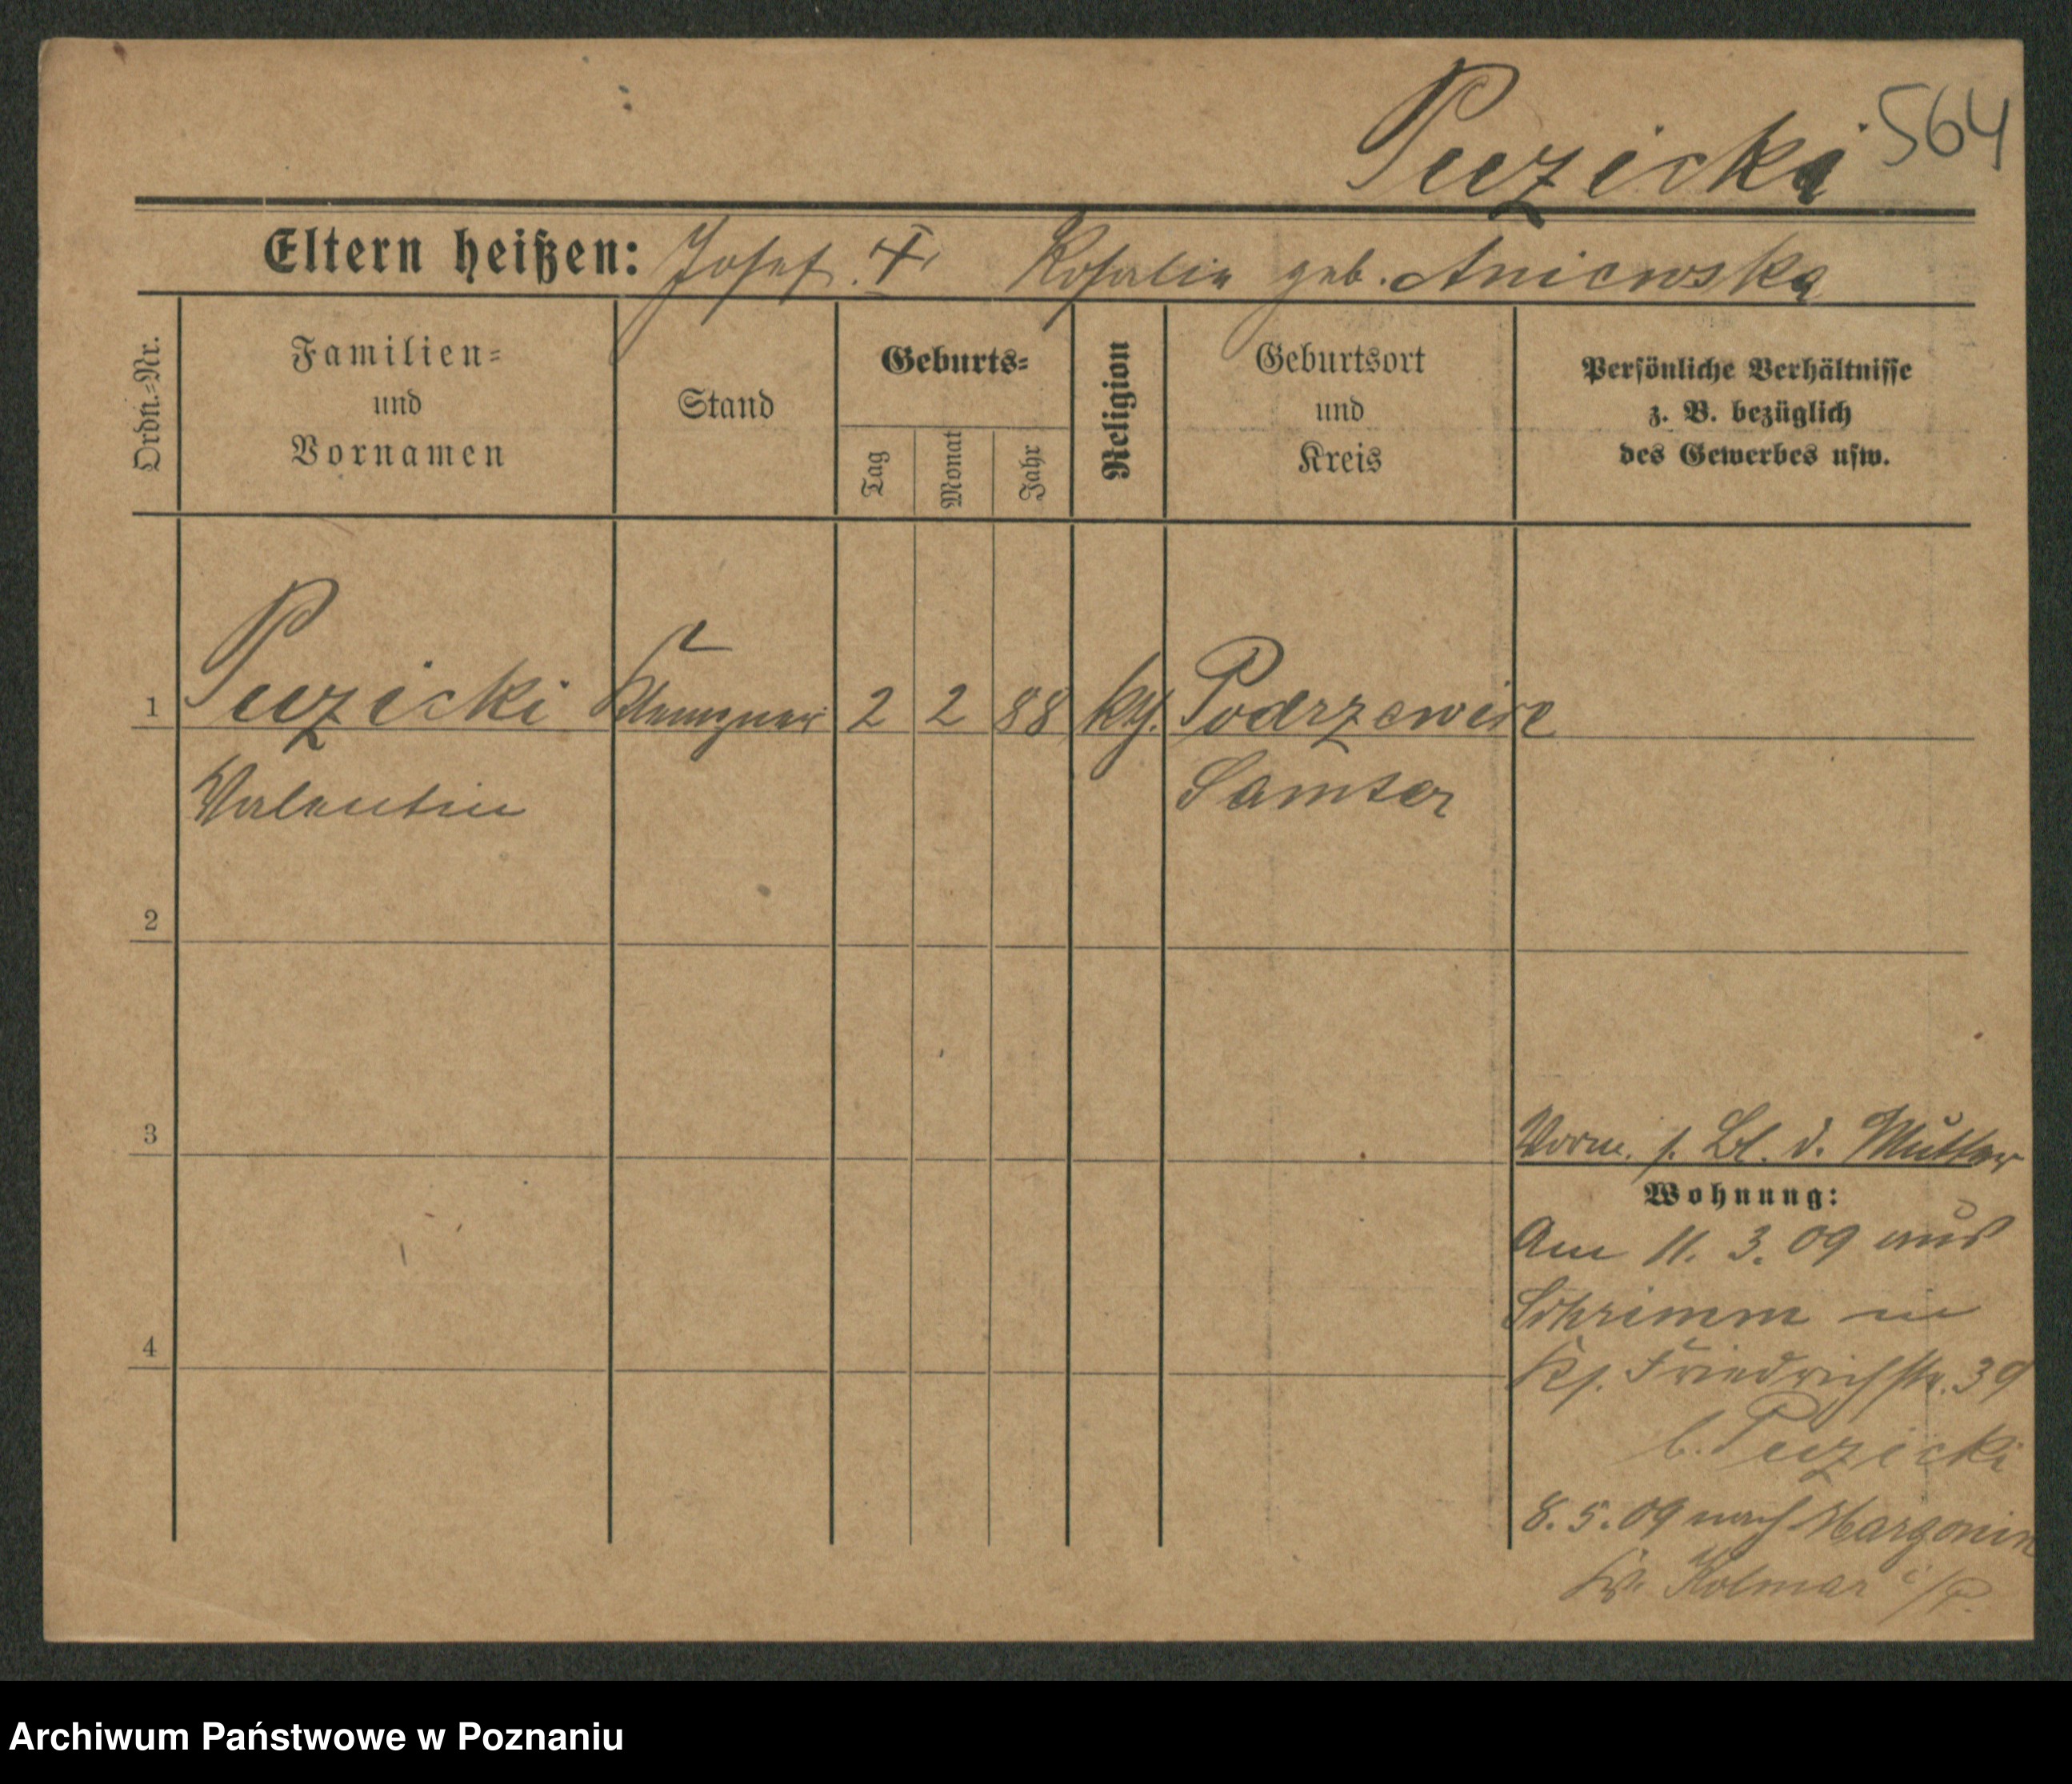 Puzicki 564
Eltern heißen: Josef. † Rosalie geb. Aniewska
Ordn.-Nr.
Familien=
und
Vornamen
Stand
Geburts=
Tag
Monat
Jahr
Religion
Geburtsort
und
Kreis
Persönliche Verhältnisse
z. B. bezüglich
des Gewerbes usw.
1 Puzicki Klempner 2 2 88 kth. Podrzewie
Valentin Samter
2
3
Vorm. s. Bl. d. Mutter
Wohnung:
Am 11. 3. 09 aus
Schrimm in
4
Friedrichstr. 39
b. Puzicki
8. 5. 09 nach Margonin
Kr. Kolmar i/P.
Archiwum Państwowe w Poznaniu